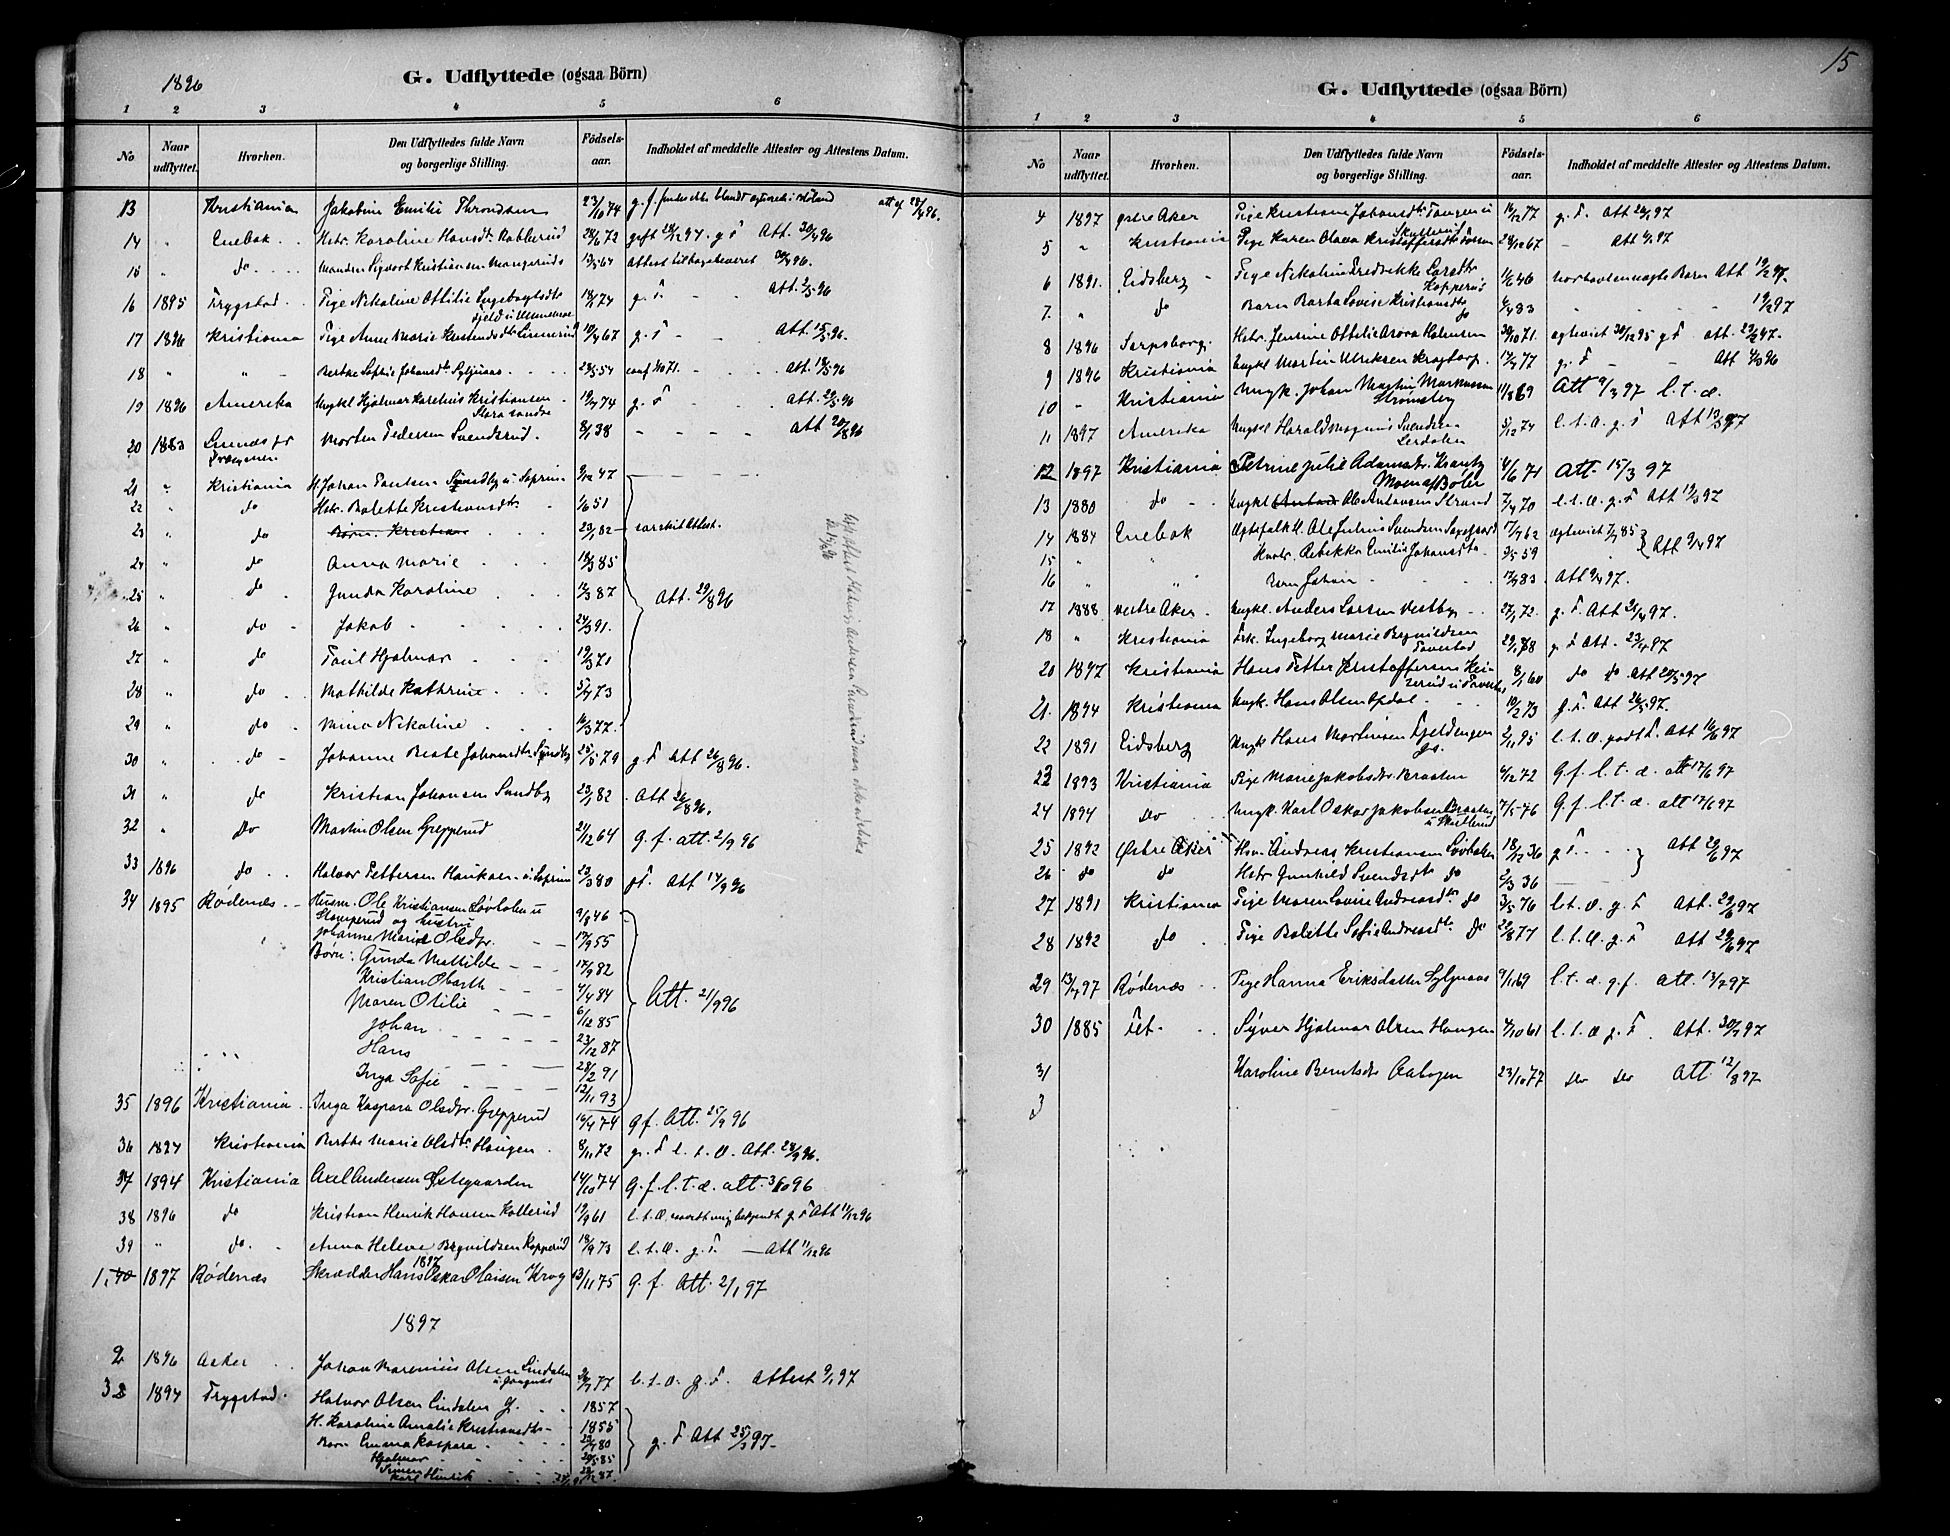 1896
G. Udflyttede (ogsaa Börn)
1 2 3 4 5 6
No Naar udflyttet. Hvorhen. Den Udflyttedes fulde Navn og borgerlige Stilling. Födsels-aar. Indholdet af meddelte Attester og Attestens Datum.
13 Kristiania Jakobine Emilie Throndsen 23/10 74 g. f.
14 " Enebak Hstr. Karoline Hansdtr. 28/6 72 gift 28/12 94. g F Att. 30/4 96
15 " do Manden Sigvart Kristiansen 13/5 64 Attest tilbageleveret
16 1895 Trygstad Pige Nikoline Ottilie Ingebrigtsdtr 18/1 74 g. F. Att. 2/5 96
17 1896 Kristiania Pige Anne Marie 10/4 67 g. F Att. 15/5 96.
18 " " Berthe Sophie Johansdtr. 28/5 54 conf. Att. 19/5 96
19 1896 Amerika Ungkl Hjalmar Karelius Kristiansen 19/7 74 g. F Att. 29/5 96
20 1883 Drammen Morten Pedersen Svendsrud. 8/1 38 Att 20/8 96
21 " Kristiania H. Johan Paulsen Sundby u. Soprim 9/12 47
22 " do Hstr. Bolette Kristiansdtr 1/6 51
23 " do Børn. Kristian 23/1 82 særskilt Attest.
24 " do Anna Marie 18/3 85
25 " do Gunda Karoline 12/3 87 Att. 29/8 96
26 " do Jakob 24/3 91.
27 " do Paul Hjalmar 19/3 71
28 " do Mathilde Kathrine 5/4 73
29 " do Mina Nikoline 16/3 77.
30 " do Johanne Beate Johansdtr. Sundby 25/5 79 g. F Att 26/8 96.
31 " do Kristian Johansen Sundby 23/1 82 Att 26/8 96.
32 " Do Martin Olsen Grepperud 21/12 64 g. f. att. 2/9 96
33 1896 do Halvor Pettersen Haukaas u. Soprim 23/3 80 gF. Att 14/9 96
34 1895 Rødenæs Husm. Ole Kristiansen Løvholen u Stomperud og hustru 9/9 46
Johanne Marie Olsdtr. 17/9 55
Børn: Gunda Mathilde 17/9 82
Kristian Obarth 4/4 84
Maren Otilie 6/12 85 Att. 21/9 96
Johan 23/12 87
Hans 28/2 91
Inga Sofie 12/11 93
35 1896 Kristiania Inga Kaspara Olsdtr. Grepperud 16/4 74 gf. Att. 25/9 96
36 1894 Kristiania Berthe Marie Olsdtr. Haugen. 8/11 72 g. F l. t. O. Att. 28/9 96.
37 1894 Kristiania Axel Andersen Østegaarden 14/10 74 g. f. l. t. æ. att. 3/10 96
38 1896 do Kristian Henrik Hansen Kallerud 19/9 61 l. t. Æ. g. F Att 11/12 96
39 " do. Anna Helene Bryvildsen Kopperud 18/9 73 l. t. Æ. g. F. Att 11/12 96
1897
1, 40 1897 Rødenæs Skrædder Hans Oskar Olaisen Krog 13/11 75 g. f. Att. 2/1 97
1897
2 1896 Asker Johan Marenius Olsen Lindalen l. t. O. g. F. Attest 9/1 97
3 1894 Trygstad Halvor Olsen Lindalen 1857
H. Karoline Amalie Kristiansdtr 1855
Børn Emma Kaspara 80 g. F Att 25/1 97
Hjalmar 85
Karl Henrik
15
G. Udflyttede (ogsaa Börn)
1 2 3 4 5 6
No Naar udflyttet. Hvorhen. Den Udflyttedes fulde Navn og borgerlige Stilling. Födsels-aar. Indholdet af meddelte Attester og Attestens Datum.
4 1897 Østre Aker Pige Kristiane Johansdtr. Tangen u Skullerud 16/12 77 g. F. Att 28/1 97
5 " Kristiania Pige Karen Olava Kristoffersdtr 28/12 67 Att 4/2 97
6 1891. Eidsberg Pige Nikoline Fredrikke Larsdtr Kopperud 1/6 46 Att 19/2 97.
7. " do Barn Barta Lovise Kristiansdtr do 4/4 83 19/2 97
8 1896 Sarpsborg. Hstr. Jensine Ottilie Halvorsen 30/10 71. ægteviet 30/12 95 g F att. 23/2 97.
9 1896 Kristiania Ungkl Martin Ulriksen Kragtorp. 17/2 77 g. F Att 4/3 96
10 " Kristiania Ungk. Johan Martin Markussen Strømsby 11/8 69 Att 9/3 97 l. t. æ.
11 1897 Amerika Ungkl Harald Magnus Svendsen Lerdalen 3/12 74 l. t. O. g. F Att 13/3 97
12 1897 Kristiania Petrine Julie Adamsdtr. 4/6 71 Att. 15/3 97
13 1880 do Ungkl Ole Antonsen Strand 7/4 70 l. t. Æ. g. F Att 19/3 97
14 1884 Enebak Ægtefolk H. Ole Julius Svendsen 17/7 62 ægteviet 7/4 85
15 " " Hustr. Rebekka Emilie Johansdtr 3/5 59 " Att 9/4 97
16 " " Barn Johan 17/9 83 Att 9/4 97.
17 1888 Vestre Aker Ungkl. Anders Larsen Vestby 27/1 72. g. F Att 21/4 97.
18 " Kristiania Frk. Ingeborg Marie Bryvildsen Taverstad 29/1 78 g. F Att. 23/4 97
20 1897 Kristiania Hans Petter Kristoffersen 8/1 60 do do Att 20/5 97
21. 1894 Kristiania Ungk. Hans Olsen Opdal 10/2 73 g. F. Att 26/5 97.
22 1891 Eidsberg Ungk Hans Martinsen Fjeldengen 2/11 95 l. t. Æ. godt F. Att 16/6 97
23 1893 Kristiania Pige Marie Jakobsdtr Braaten 4/12 72 g. f. l. t. æ. att 17/6 97
24 1894 do Ungk. Karl Oskar Jakobsen Braaten u Skullerud 7/5 76 g. f. l. t. æ. att 17/6 97
25 1892 Østre Aker Hsm. Andreas Kristiansen Løvholen 18/12 36 g F. Att 29/6 97
26 do do Hstr Gunhild Svendsdtr do 2/3 36
27 1891 Kristiania Pige Maren Lovise Andreasdtr do 3/5 76 l. t. O. g. F Att 29/6 97
28 1892 do Pige Bolette Sofie Andreasdtr do 22/8 77 l. t. Æ. g. F Att 29/6 97
29 13/7 97 Rødenæs Pige Hanna Eriksdatter 9/1 69 l. t. æ. g. f. Att. 13/7 97
30 1885 Fet Syver Hjalmar Olsen Haugen 4/10 61 l. t. Æ g. F. Att. 30/7 97
31 Karoline Berntsdtr Aabogen 23/10 77 do do Att. 12/8 97
3